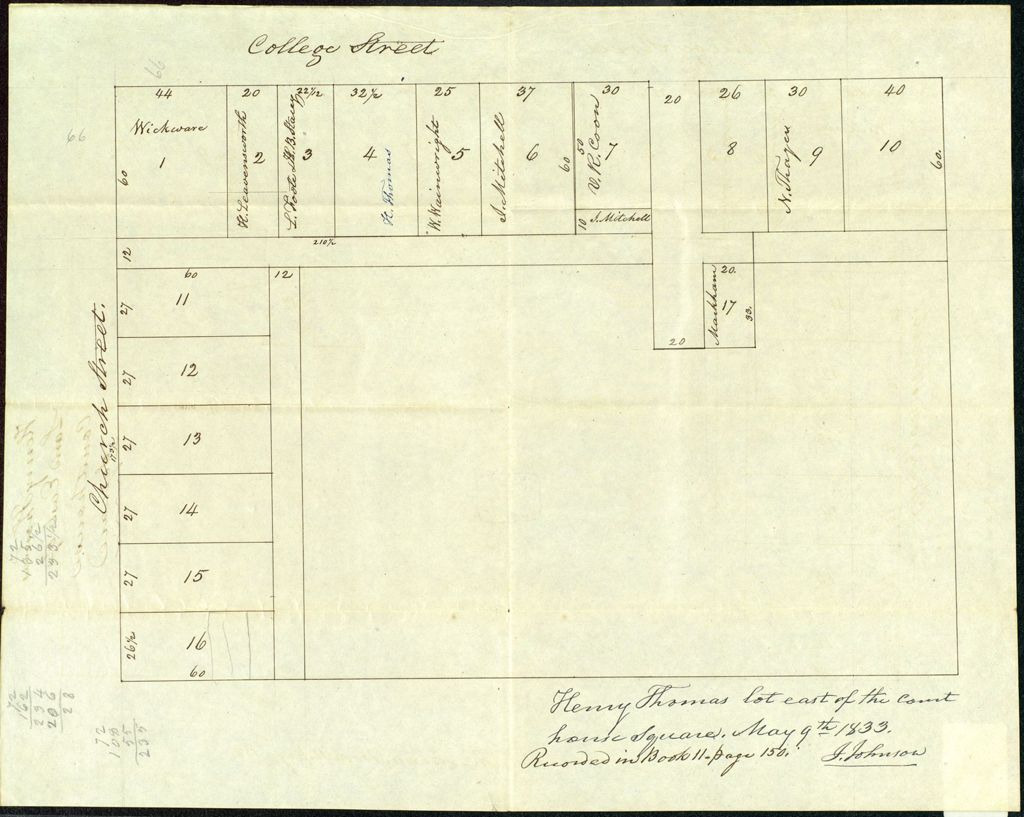 College Street
66
44 20 22½ 32½ 25 37 30 20 26 30 40
66
Wickware
1
60
H. Leavensworth
2
L. Foote & H. B. Stacy
3
4
H. Thomas
W. Wainwright
5
J. Mitchell
6
60
50
V. R. Coon
7
10 J. Mitchell
8
N. Thayer
9
10
60.
12
210½
60
12
27 11
27 12
27 13
27 14
27 15
26½ 16
60
Church Street.
173½
Markham
20.
17
33.
20
Henry Thomas lot east of the court
house Square. May 9th 1833.
Recorded in Book 11-page 150.
J. Johnson
72
162
234
206
28
72
108
55
235